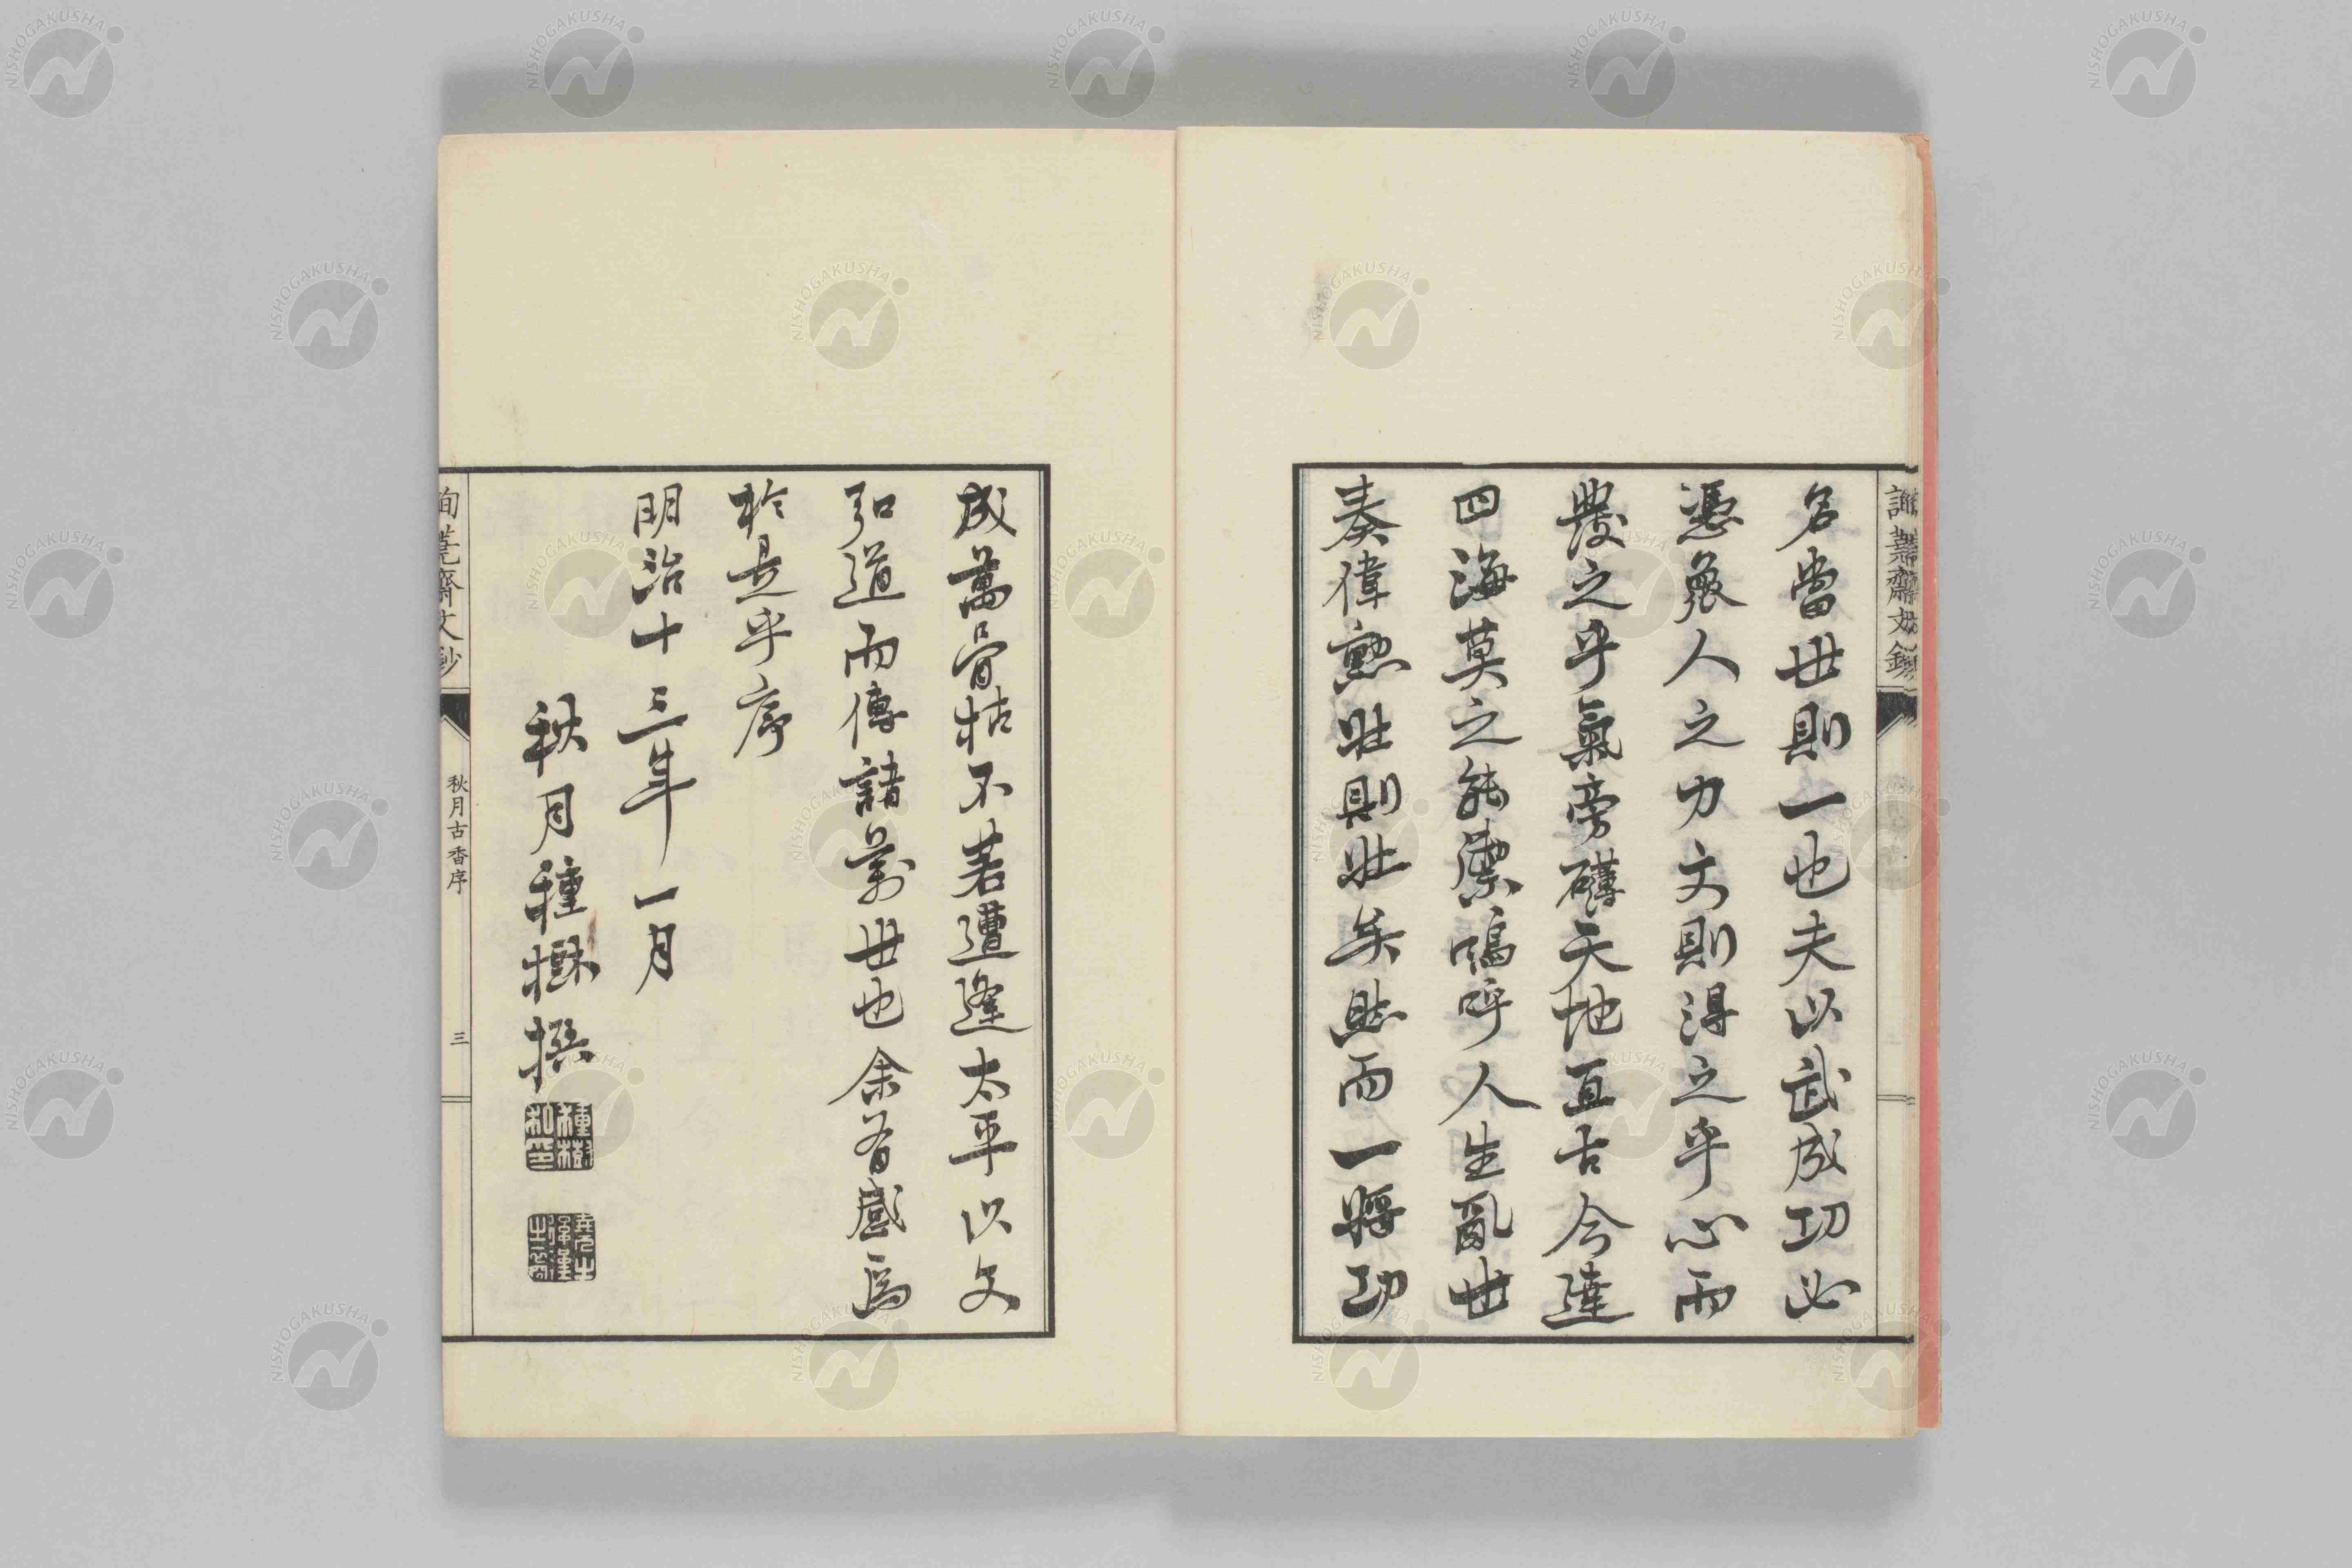 名當世則一也夫以武成功必
憑衆人之力文則得之乎心而
發之乎氣旁礴天地亙古今達
四海莫之能禦嗚呼人生亂世
奏偉勲壯則壯矣然而一將功
成萬骨枯不若遭逢太平以文
弘道而傳諸萬世也余有感焉
於是乎序
明治十三年一月
秋月種樹撰
種樹
秋月古香序
三
NISHOGAKUSHA